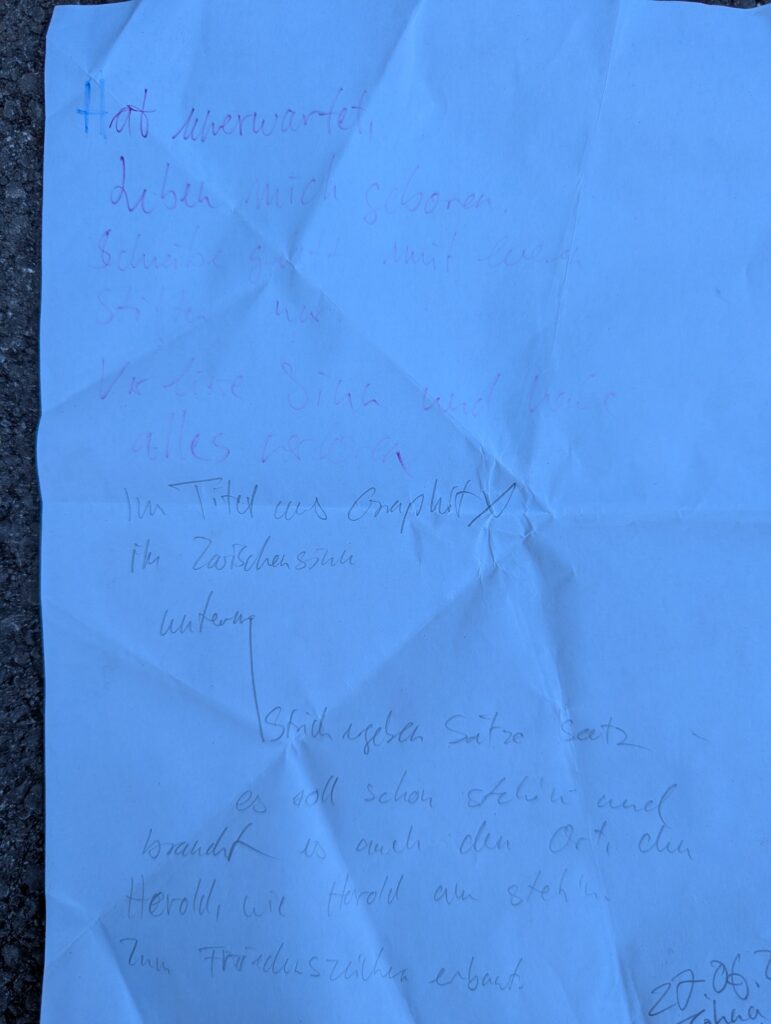 Hat unerwartet,
Leben mich geboren.
Schreibe mit
Stiften
Sinn und habe
alles verloren
Im Titel aus Graphit
im Zwischensinn
unterm
Strich ergeben Sätze Satz
es soll schon stehin und
braucht es auch den Ort, den
Herold, wie Herold am stehin.
Zum Friedenszeichen erbaut.
27.06.